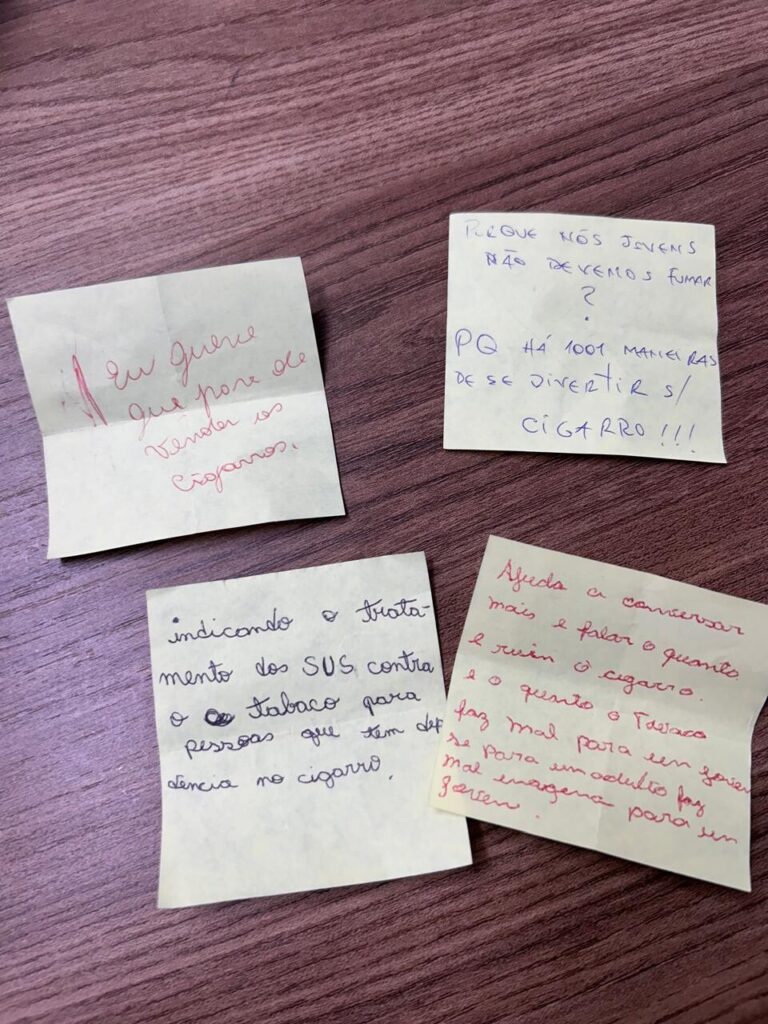 Eu queria
que pare de
vender os
cigarros.
PORQUE NÓS JOVENS
NÃO DEVEMOS FUMAR
?
PQ HÁ 1001 MANEIRAS
DE SE DIVERTIR S/
CIGARRO!!!
indicando o trata-
mento dos SUS contra
o tabaco para
pessoas que tem dep
dencia no cigarro.
Ajuda a conversar
mais e falar o quanto
e ruin o cigarro.
e o quanto o Tabaco
faz mal para um jovem
se para um adulto faz
mal imagena para um
joven.